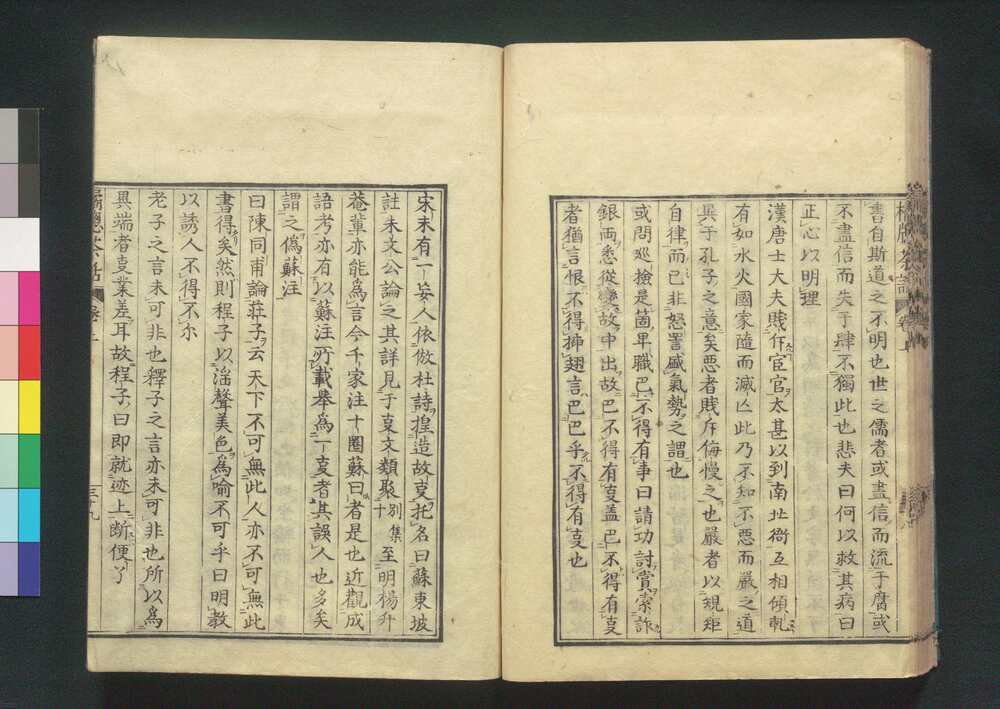 書自斯道之不明也世之儒者或盡信而流于腐或
不盡信而失于肆不獨此也悲夫曰何以救其病曰
正心以明理
漢唐士大夫賤斥宦官太甚以到南北衙互相傾軋
有如水火國家隨而滅亾此乃不知不悪而嚴之道
異于孔子之意矣悪者賤斥侮慢之也嚴者以規矩
自律而已非怒詈盛氣勢之謂也
或問巡檢是箇卑職巴不得有事曰請功討賞索詐
銀両悉從故中出故巴不得有叓盖巴不得有叓
者猶言恨不得挿翅言巴巴乎不得有叓也
宋末有一妄人依倣杜詩揑造故叓托名曰蘇東坡
註朱文公論之其詳見于叓文類聚別集十至明楊升
菴輩亦能爲言今千家注十圏蘇曰者是也近觀成
語考亦有以蘇注所載舉爲一叓者其誤人也多矣
謂之偽蘇注
曰陳同甫論莊子云天下不可無此人亦不可無此
書得矣然則程子以淫聲美色爲喩不可乎曰明教
以誘人不得不尓
老子之言未可非也釋子之言亦未可非也所以爲
異端者叓業差耳故程子曰即就迹上断便了
三十九